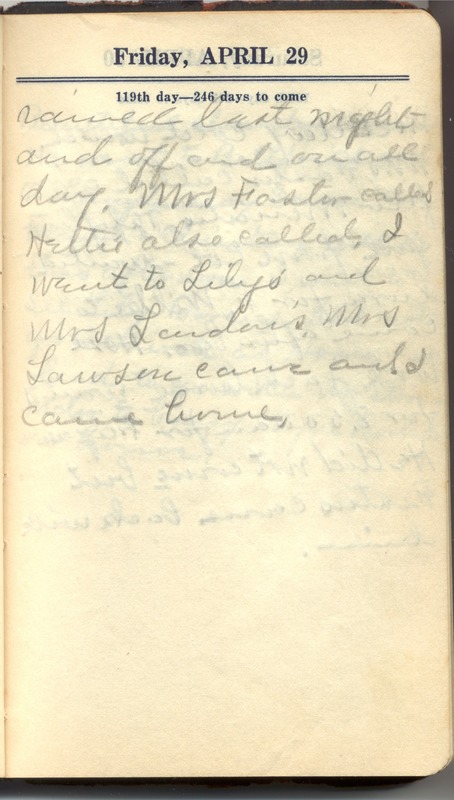 Friday, APRIL 29
119th day—246 days to come
rained last night
and off and on all
day. Mrs Foster called
Hettie also called, I
went to Lily's and
Mrs Landon's. Mrs
Lawson came and I
came home.